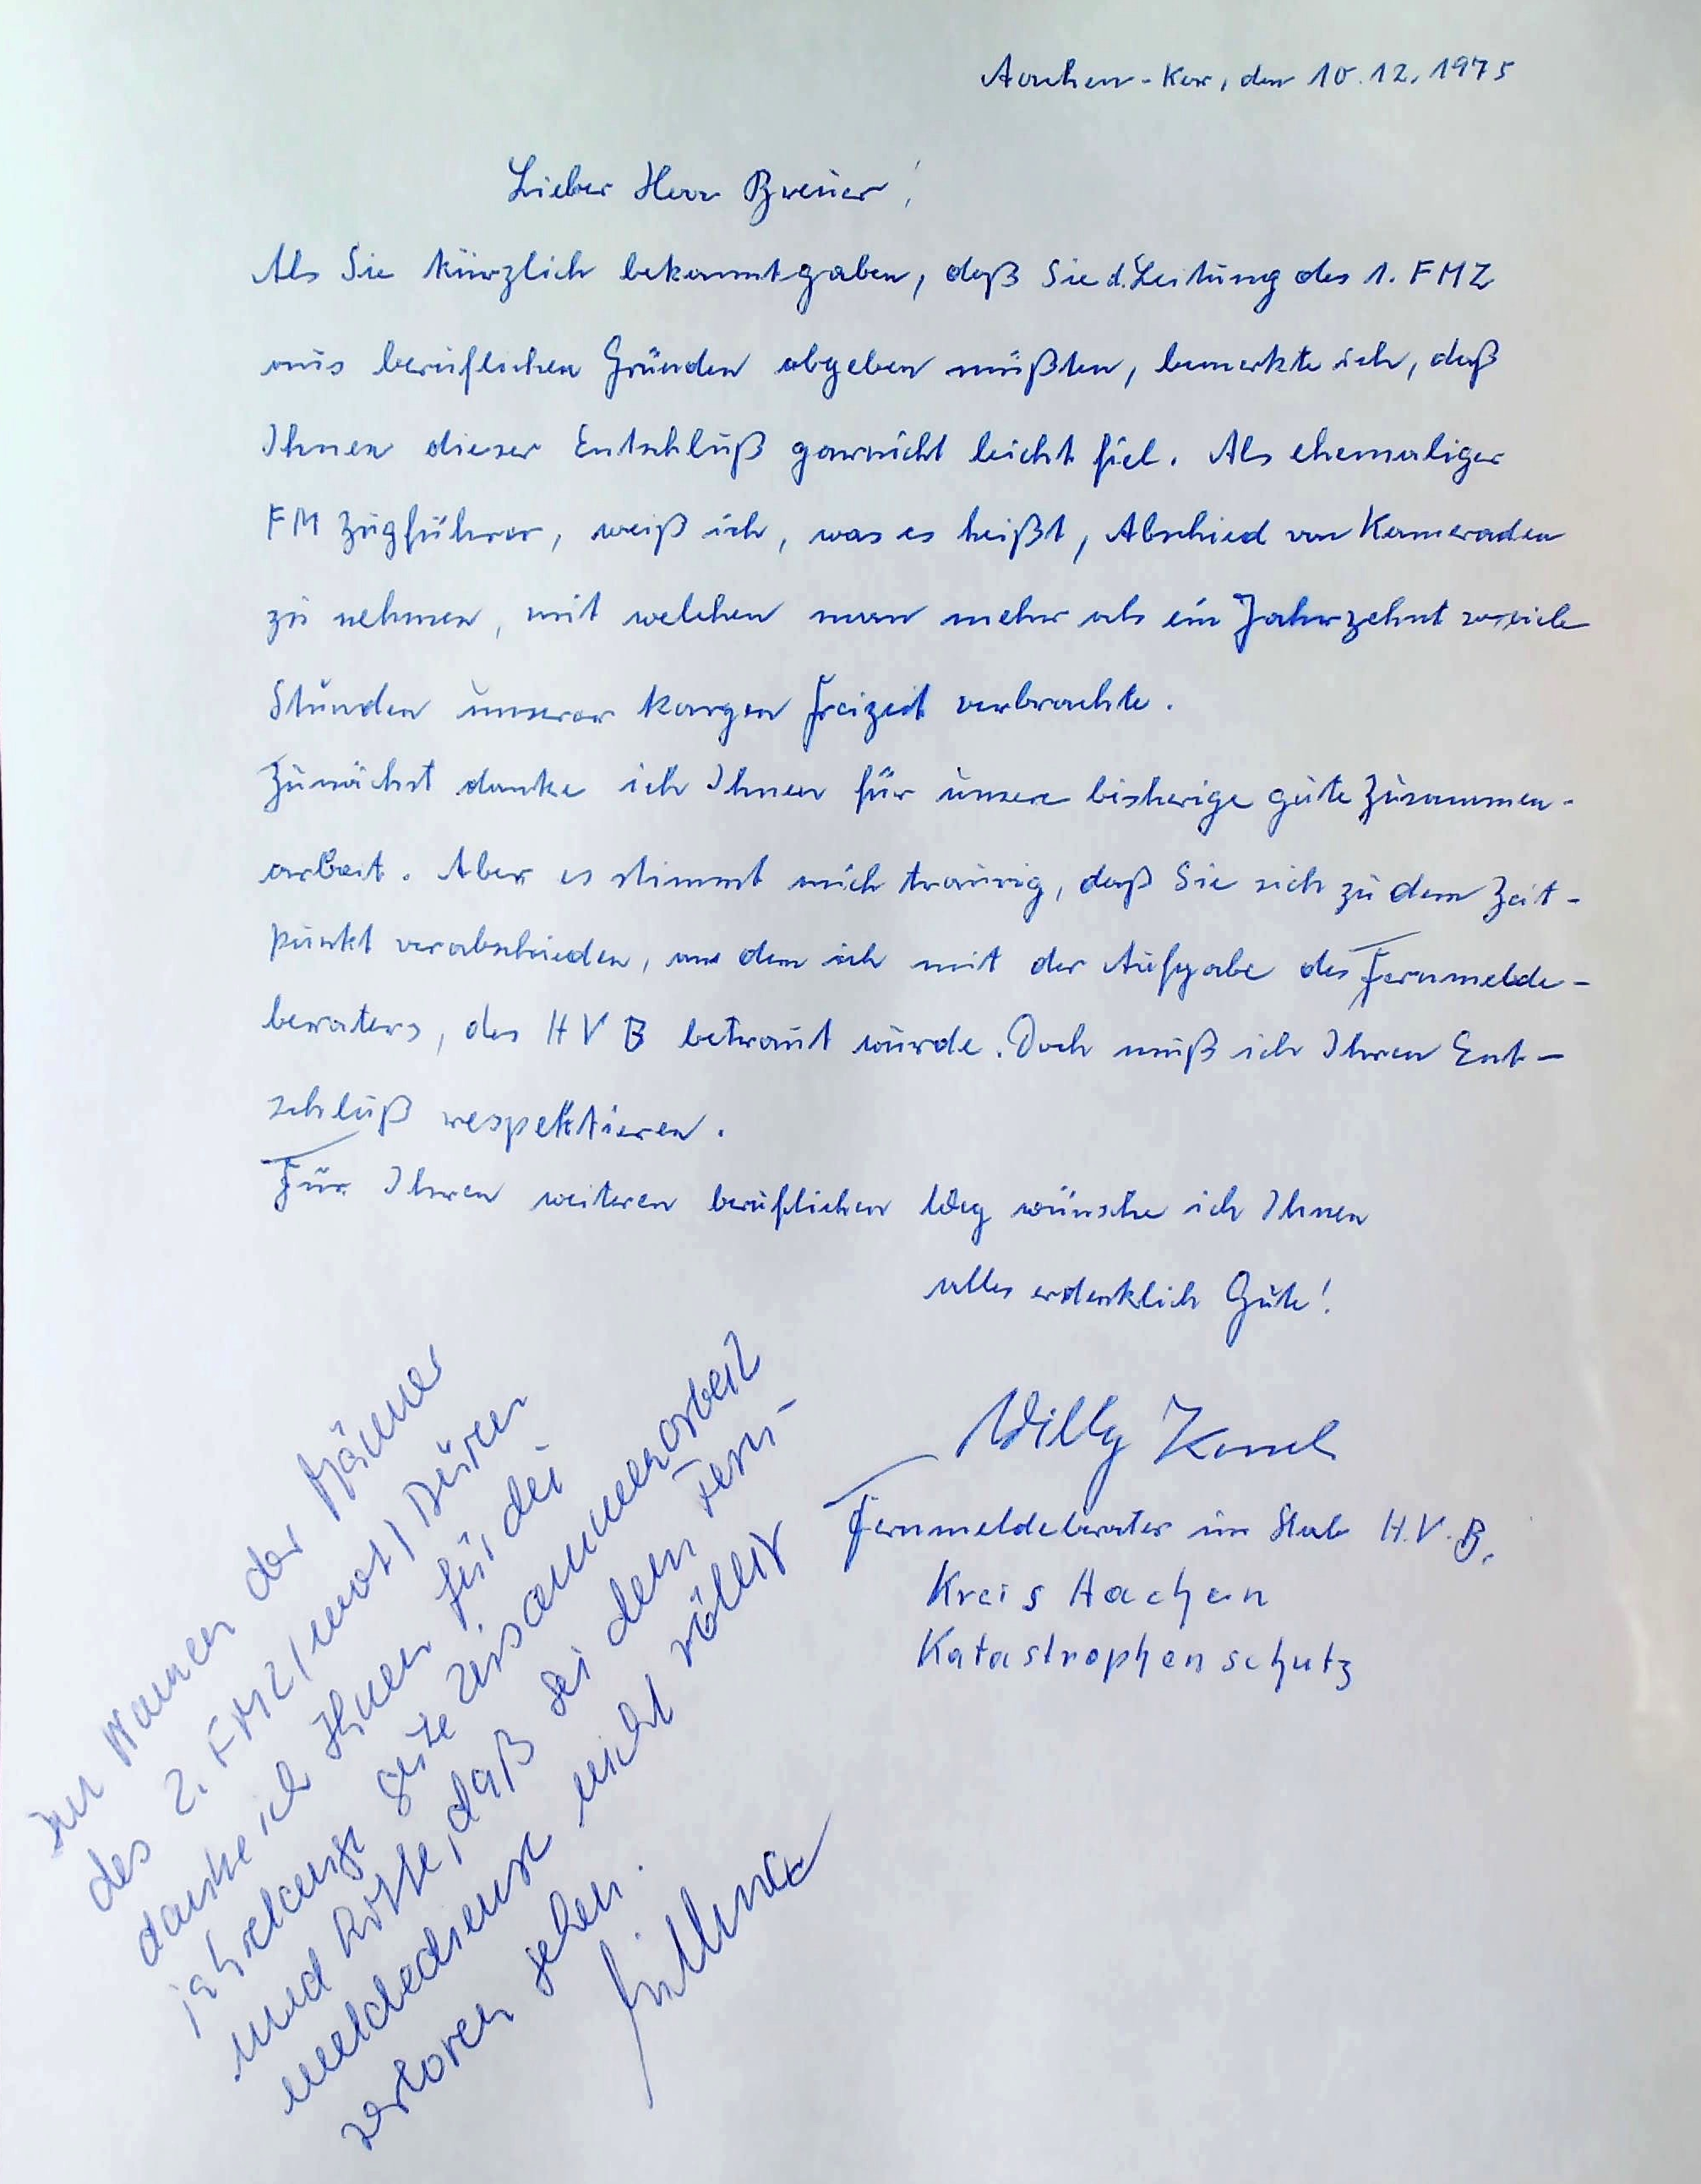 Aachen - Kor, den 10.12.1975
Lieber Herr Breuer!
Als Sie kürzlich bekanntgaben, daß Sie d. Leitung des 1. FMZ
aus beruflichen Gründen abgeben müßten, bemerkte ich, daß
Ihnen dieser Entschluß garnicht leicht fiel. Als ehemaliger
FM Zugführer, weiß ich, was es heißt, Abschied von Kameraden
zu nehmen, mit welchen man mehr als ein Jahrzehnt soviele
Stunden unserer kargen Freizeit verbrachte.
Zunächst danke ich Ihnen für unsere bisherige gute Zusammen-
arbeit. Aber es stimmt mich traurig, daß Sie sich zu dem Zeit-
punkt verabschieden, an dem ich mit der Aufgabe des Fernmelde-
beraters, des HVB betraut wurde. Doch muß ich Ihren Ent-
schluß respektieren.
Für Ihren weiteren beruflichen Weg wünsche ich Ihnen
alles erdenklich Gute!
Willy
Fernmeldeberater im Stab H.V.B.
Kreis Aachen
Katastrophenschutz
Im Namen der Männer
des 2. FMZ (mot) Düren
danke ich Ihnen für die
jahrelange gute Zusammenarbeit
und hoffe, daß Sie dem Fern-
meldedienst nicht völlig
verloren gehen.